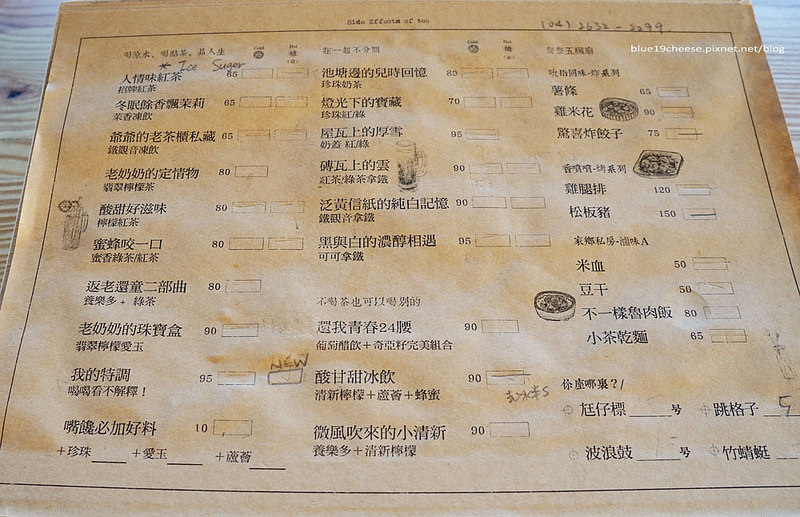 Side Effects of tea
(04) 2632-3299
blue19cheese.pixnet.net/blog
喝涼水、喝點茶、品人生
Cold
Hot
* Ice Sugar
人情味紅茶 65
招牌紅茶
冬眠餘香飄茉莉 65
茉香凍飲
爺爺的老茶櫃私藏 65
鐵觀音凍飲
老奶奶的定情物 80
翡翠檸檬茶
酸甜好滋味 80
檸檬紅茶
蜜蜂咬一口 80
蜜香綠茶/紅茶
返老還童二部曲 80
養樂多+ 綠茶
老奶奶的珠寶盒 90
翡翠檸檬愛玉
NEW
我的特調 95
喝喝看不解釋！
嘴饞必加好料 10
+珍珠 +愛玉 +蘆薈
在一起不分別
Cold
Hot
池塘邊的兒時回憶 80
珍珠奶茶
燈光下的寶藏 70
珍珠紅/綠
屋瓦上的厚雪 95
奶蓋 紅/綠
磚瓦上的雲 90
紅茶/綠茶拿鐵
泛黃信紙的純白記憶 90
鐵觀音拿鐵
黑與白的濃醇相遇 95
可可拿鐵
不喝茶也可以喝別的
還我青春24腰 90
葡萄醋飲+奇亞籽完美組合
酸甘甜冰飲 90
清新檸檬+蘆薈+蜂蜜
去冰半S
微風吹來的小清新 90
養樂多+清新檸檬
祭祭五臟廟
吮指回味-炸系列
薯條 65
雞米花 90
驚喜炸餃子 75
香噴噴-烤系列
雞腿排 120
松板豬 150
家鄉私房-滷味A
米血 50
豆干 50
不一樣魯肉飯 80
小茶乾麵 65
你座哪裏？/
尪仔標 号
跳格子 5
波浪鼓 号
竹蜻蜓